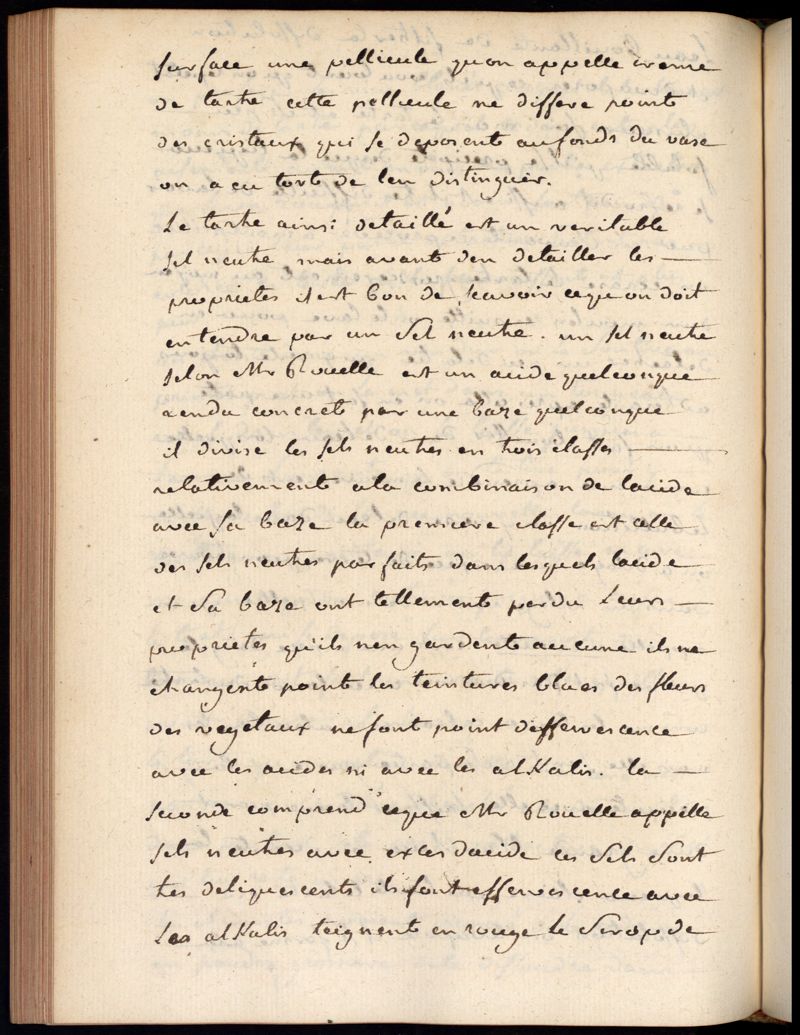 surface une pellicule qu'on appelle creme
de tartre cette pellicule ne differe point
des cristaux qui se deposent au fonds du vase
on a eu tort de len distinguer.
Le tartre ainsi detaillé est un veritable
sel neutre mais avant den detailler les —
proprietes il est bon de scavoir ceque on doit
entendre par un Sel neutre. un sel neutre
selon Mr Rouelle est un acide quelconque
rendu concret par une baze quelconque
il divise les sels neutres en trois classes —
relativement a la combinaison de lacide
avec sa baze la premiere classe est celle
des sels neutres parfaits dans lesquels lacide
et sa baze ont tellement perdu Leurs —
proprietés qu'ils nen gardent aucune ils ne
changent point les teintures blues des fleurs
des vegetaux ne font point deffervescence
avec les acides ni avec les alKalis. la —
seconde comprend ceque Mr Rouelle appelle
sels neutres avec exces dacide ces Sels Sont
tres deliquescents ils font effervescence avec
Les alKalis teignent en rouge le Sirop de